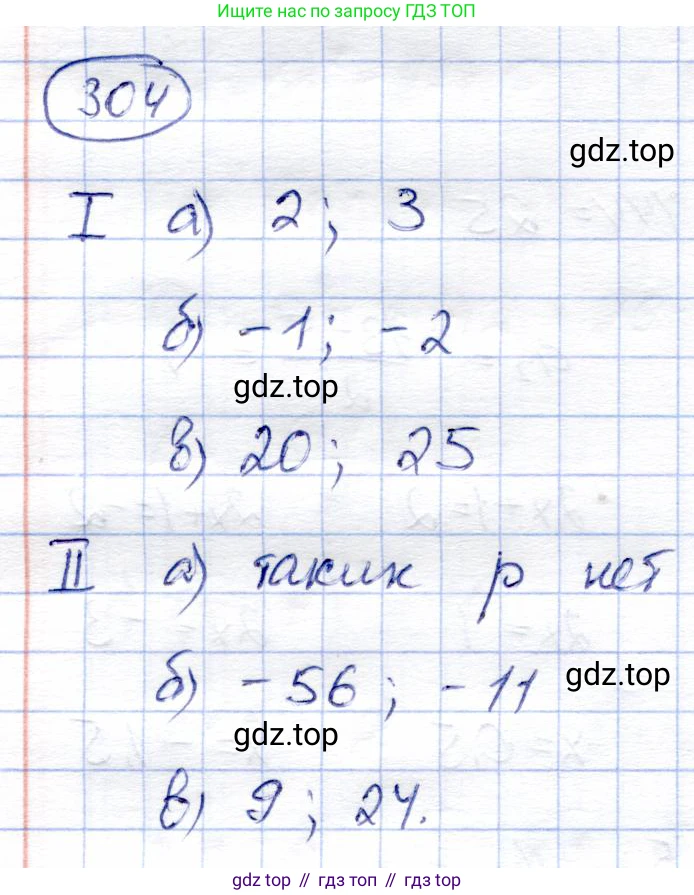 Ищите нас по запросу ГДЗ ТОП
304
gdz.top
I а) 2; 3
б) -1; -2
gdz.top
в) 20; 25
II а) таких p нет
б) -56; -11
gdz.top
gdz.top
в) 9; 24.
gdz top // гдз топ // гдз top